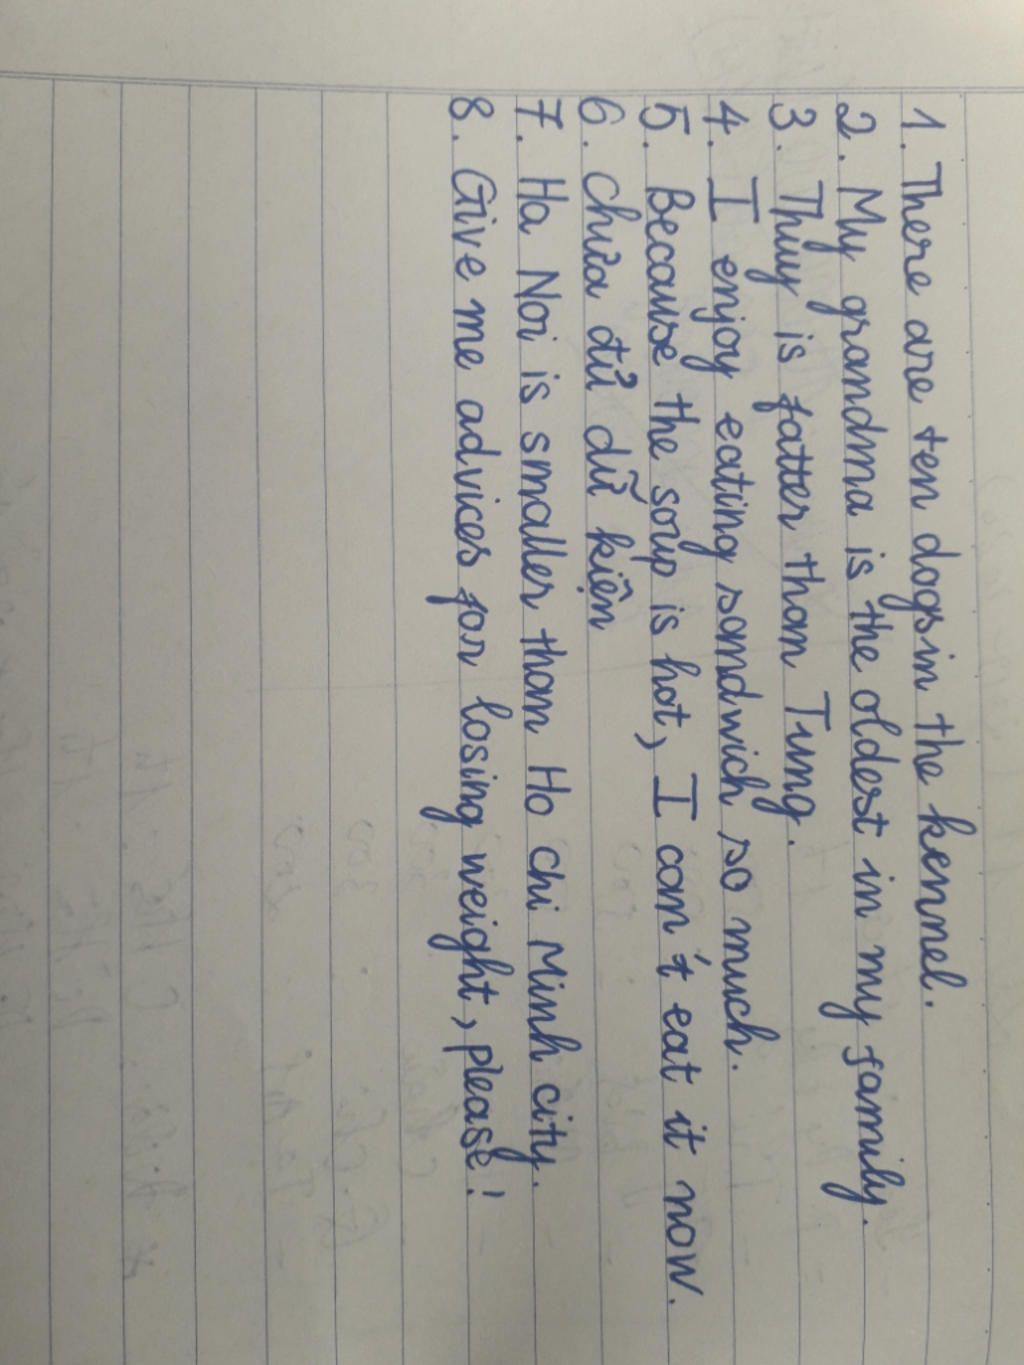 1. There are ten dogs in the kennel.
2. My grandma is the oldest in my family.
3. Thuy is fatter than Tung.
4. I enjoy eating sandwich so much.
5. Because the soup is hot, I can't eat it now.
6. Chưa đủ dữ kiện
7. Ha Noi is smaller than Ho chi Minh city.
8. Give me advices for losing weight, please!